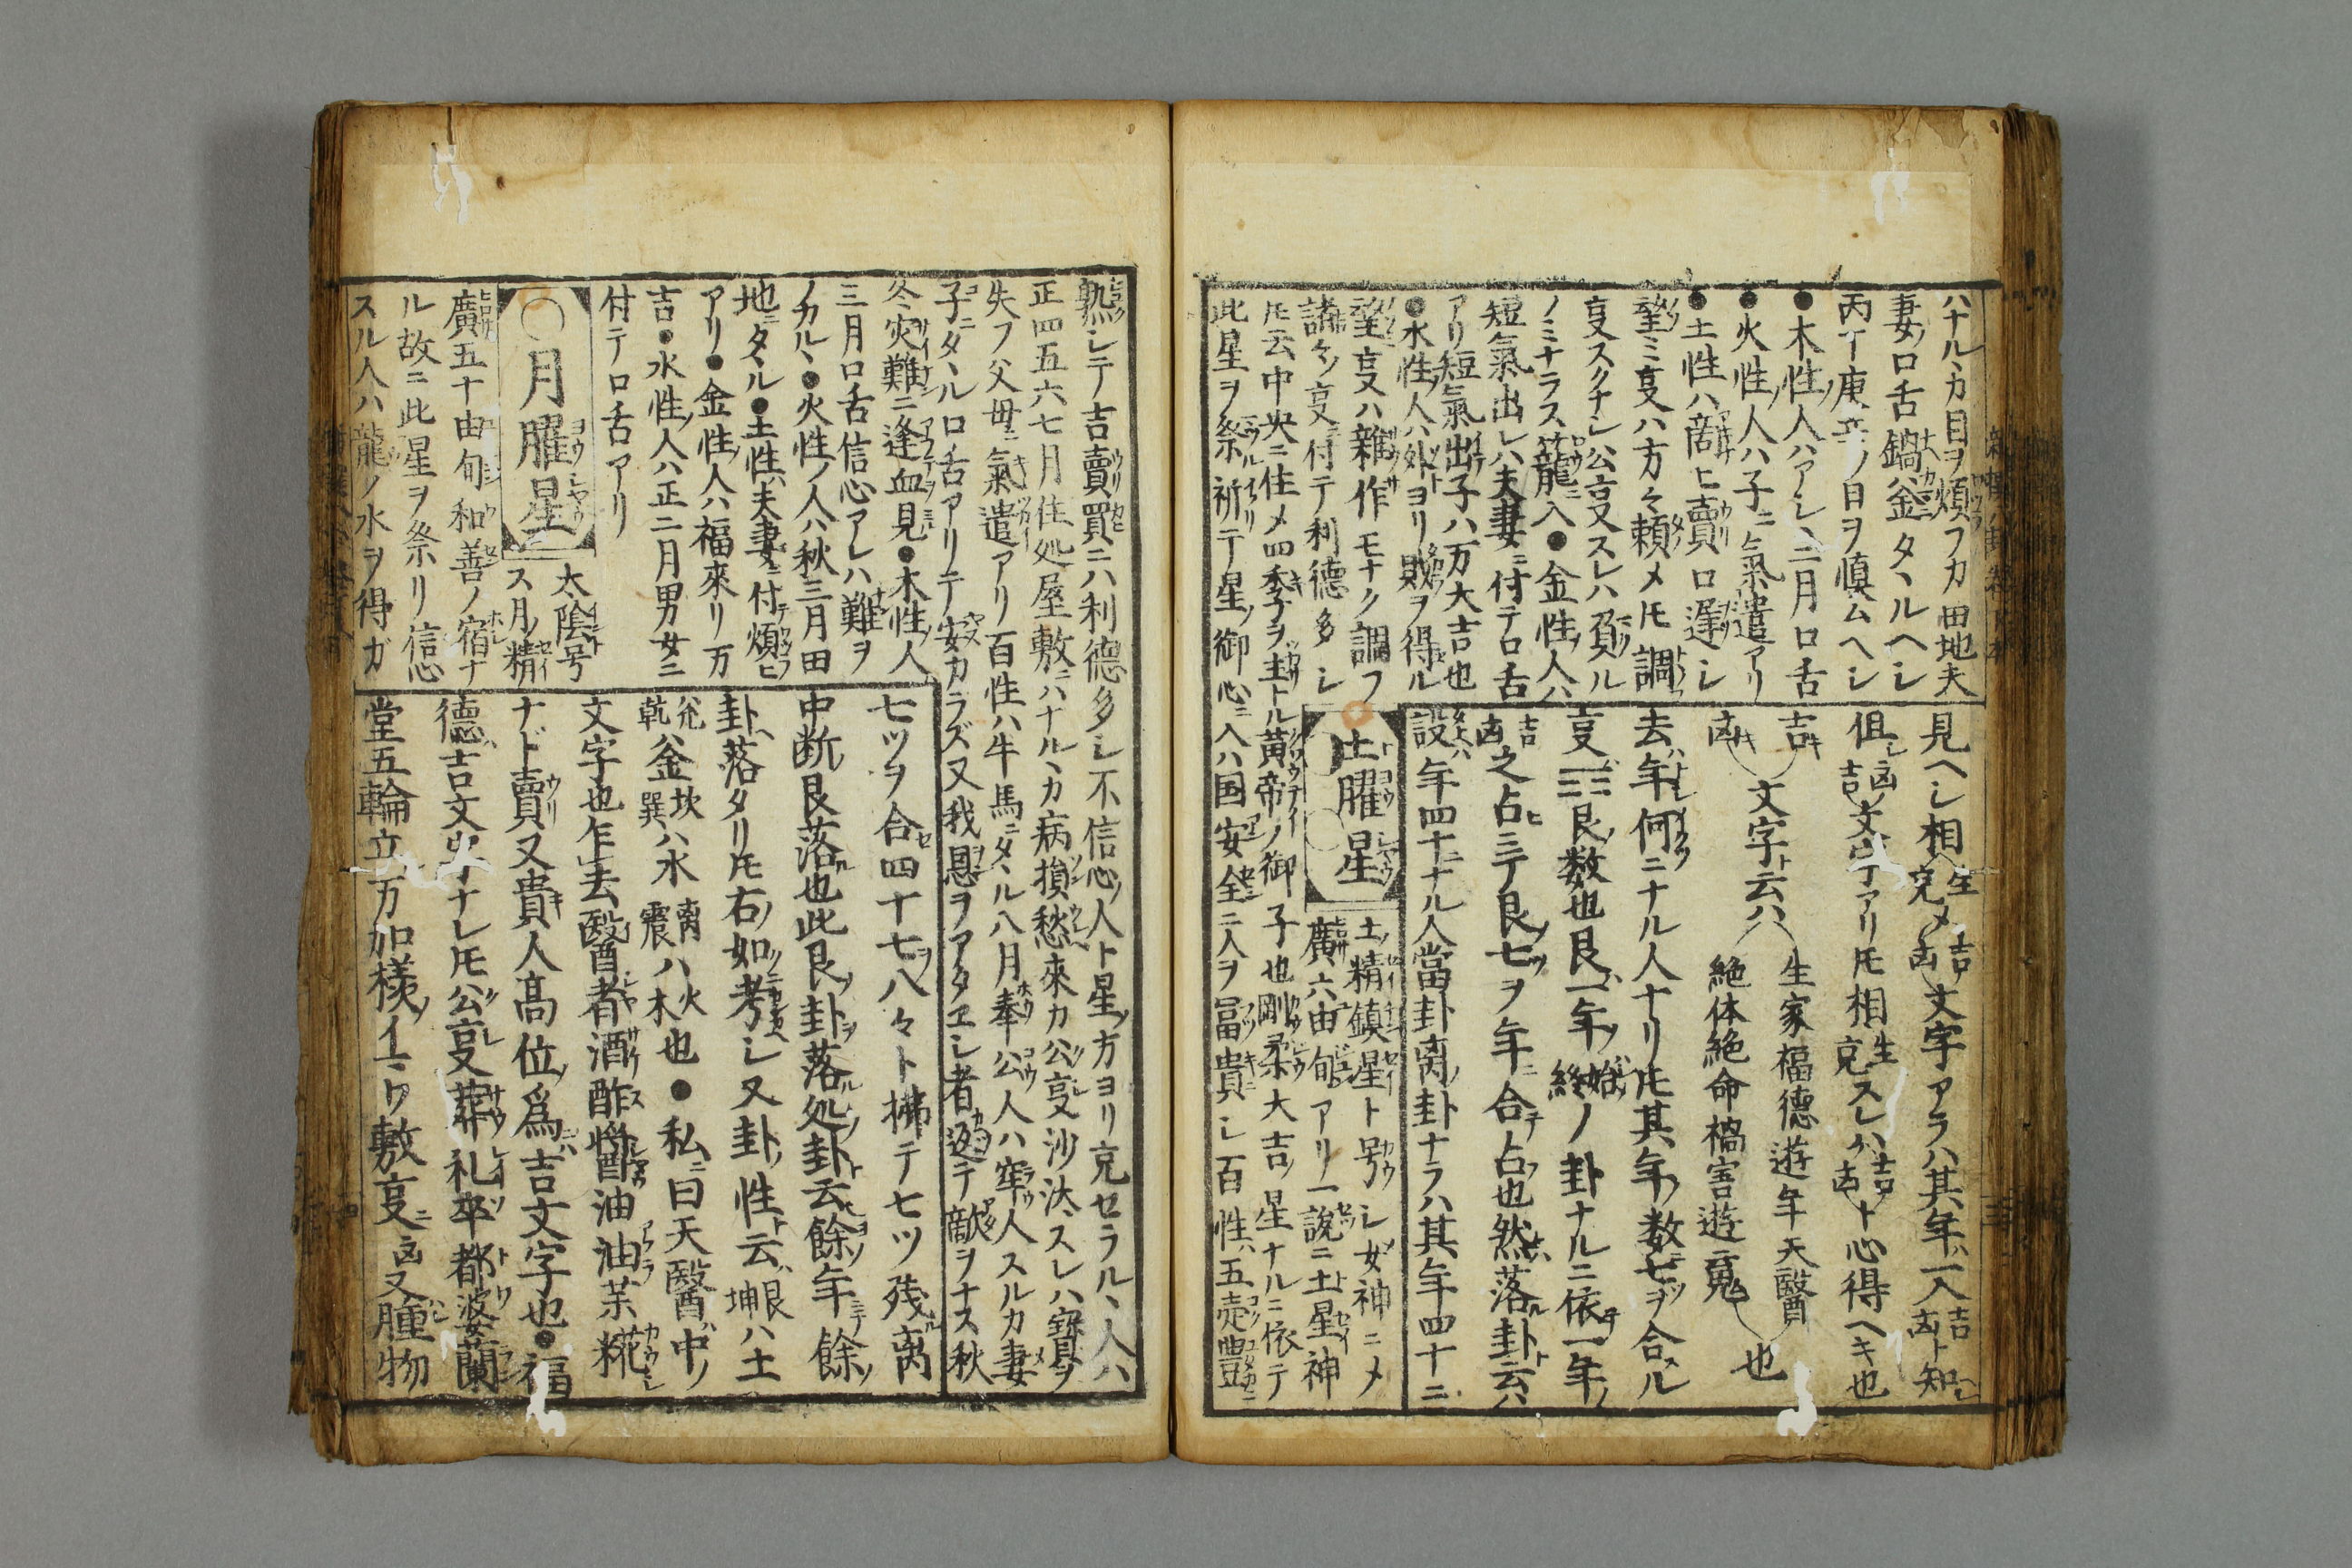 ハナルヽカ目ヲ煩フカ田地夫
妻ノ口舌鍋釜タヽルヘシ
丙丁庚辛ノ日ヲ慎ムヘシ
●木性ノ人ハアシヽ二月口舌
●火性ノ人ハ子ニ氣遣アリ
●土性ハ商ヒ賣口遅シ
望ミ叓ハ方々頼メ𪜈調
叓スクナシ公叓スレハ負ル
ノミナラス籠ニ入●金性ノ人ハ
短氣出レハ夫妻ニ付テ口舌
アリ短氣出子ハ万大吉也
●水性ノ人ハ外ヨリ賤ヲ得ル
望叓ハ雜作モナク調フ
諸々ノ叓ニ付テ利德多シ
見ヘシ相生剋〆吉凶文字アラハ其年ハ入吉凶ト知ヘシ
但シ凶吉文字アリ𪜈相生克スレハ吉凶ト心得ヘキ也
吉キ凶キ文字ト云ハ生家福德遊年天醫
絶体絶命禍害遊䰟也
去年何ニナル人ナリ𪜈其年ノ数ニ七ツヲ合スル
叓ハ☶艮ノ数也艮ハ年ノ始終ノ卦ナルニ依テ一年ノ
吉凶之占ヒニテ艮ノ七ツヲ年ニ合テ占フ也然ハ落ル卦ト云ハ
設ハ年四十ニナル人當卦离ノ卦ナラハ其年四十ニ
土曜星
土ノ精鎮星ト号シ女神ニメ
廣六由旬アリ一說ニ土星神
𪜈云中央ニ住メ四季ヲ主トル黃帝ノ御子也剛柔大吉ノ星ナルニ依テ
此星ヲ祭祈テ星ノ御心ニ入ハ国安全ニ人ヲ冨貴シ百性ハ五売豊ニ
熟シテ吉賣買ニハ利德多シ不信心ノ人ト星ノ方ヨリ克セラルヽ人ハ
正四五六七月住処屋敷ニハナルヽカ病損愁來カ公叓沙汰スレハ寶ヲ
失フ父母ニ氣遣アリ百性ハ牛馬ニタヽル八月奉公人ハ牢人スルカ妻
子ニタヽル口舌アリテ安カラズ又我恩ヲアタヱシ者返テ敵ヲナス秋
冬災難ニ逢血見●木性ノ人
三月口舌信心アレハ難ヲ
ノカルヽ●火性ノ人ハ秋三月田
地ニタヽル●土性ハ夫妻ニ付テ煩ヒ
アリ●金性ノ人ハ福來リ万
吉●水性ノ人ハ正二月男女ニ
付テ口舌アリ
○月曜星
太陰号
ス月ノ精
廣五十由旬和善ノ宿ナ
ル故ニ此星ヲ祭リ信心
スル人ハ龍ノ水ヲ得ガ
七ツヲ合セ四十七ヲ八々ト拂テ七ツ残ル离
中断艮落ル也此艮ノ卦ヲ落ル処ノ卦ト云ヒ餘ノ年ニテ餘ノ
卦ヘ落タリ𪜈右ノ如ニ考シ又卦ノ性ト云ハ艮坤ハ土
兊乹ハ釜坎巽ハ水离震ハ火木也●私ニ曰天醫ハ中ノ
文字也乍去醫者酒酢醬油油茱糀
ナド賣又貴人高位ノ爲ニハ吉文字也●福
德ハ吉文字ナレ𪜈公叓葬礼卒都婆蘭
堂五輪立万加様ノイワヰ敷叓ニ凶又腫物